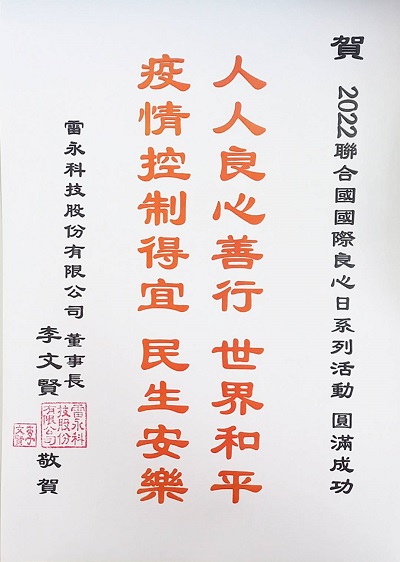 賀 2022聯合國國際良心日系列活動 圓滿成功
人人良心善行 世界和平
疫情控制得宜 民生安樂
雷永科技股份有限公司 董事長
李文賢 敬賀
雷永科
技股份
有限公司
李文賢